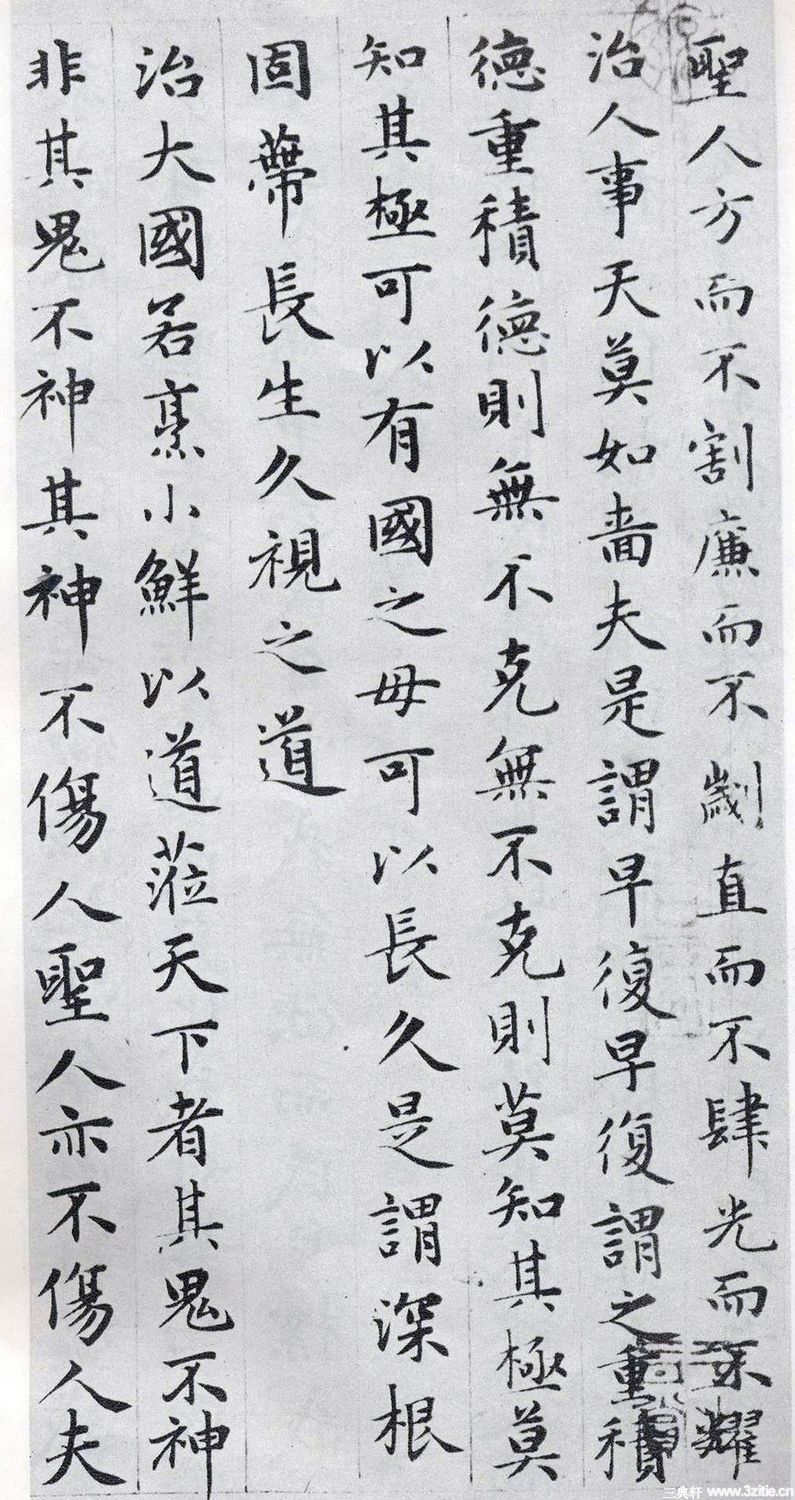 聖人方而不割廉而不劌直而不肆光而不耀
治人事天莫如嗇夫是謂早復早復謂之重積
德重積德則無不克無不克則莫知其極莫
知其極可以有國之母可以長久是謂深根
固蔕長生久視之道
治大國若烹小鮮以道蒞天下者其鬼不神
非其鬼不神其神不傷人聖人亦不傷人夫
三典轩 www.3zitie.cn